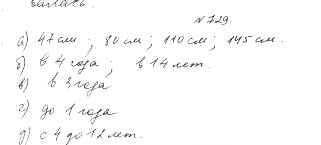 № 729
а) 47 см ; 80 см ; 110 см ; 145 см.
б) в 4 года ; в 14 лет.
в) в 3 года
г) до 1 года
д) с 4 до 12 лет.